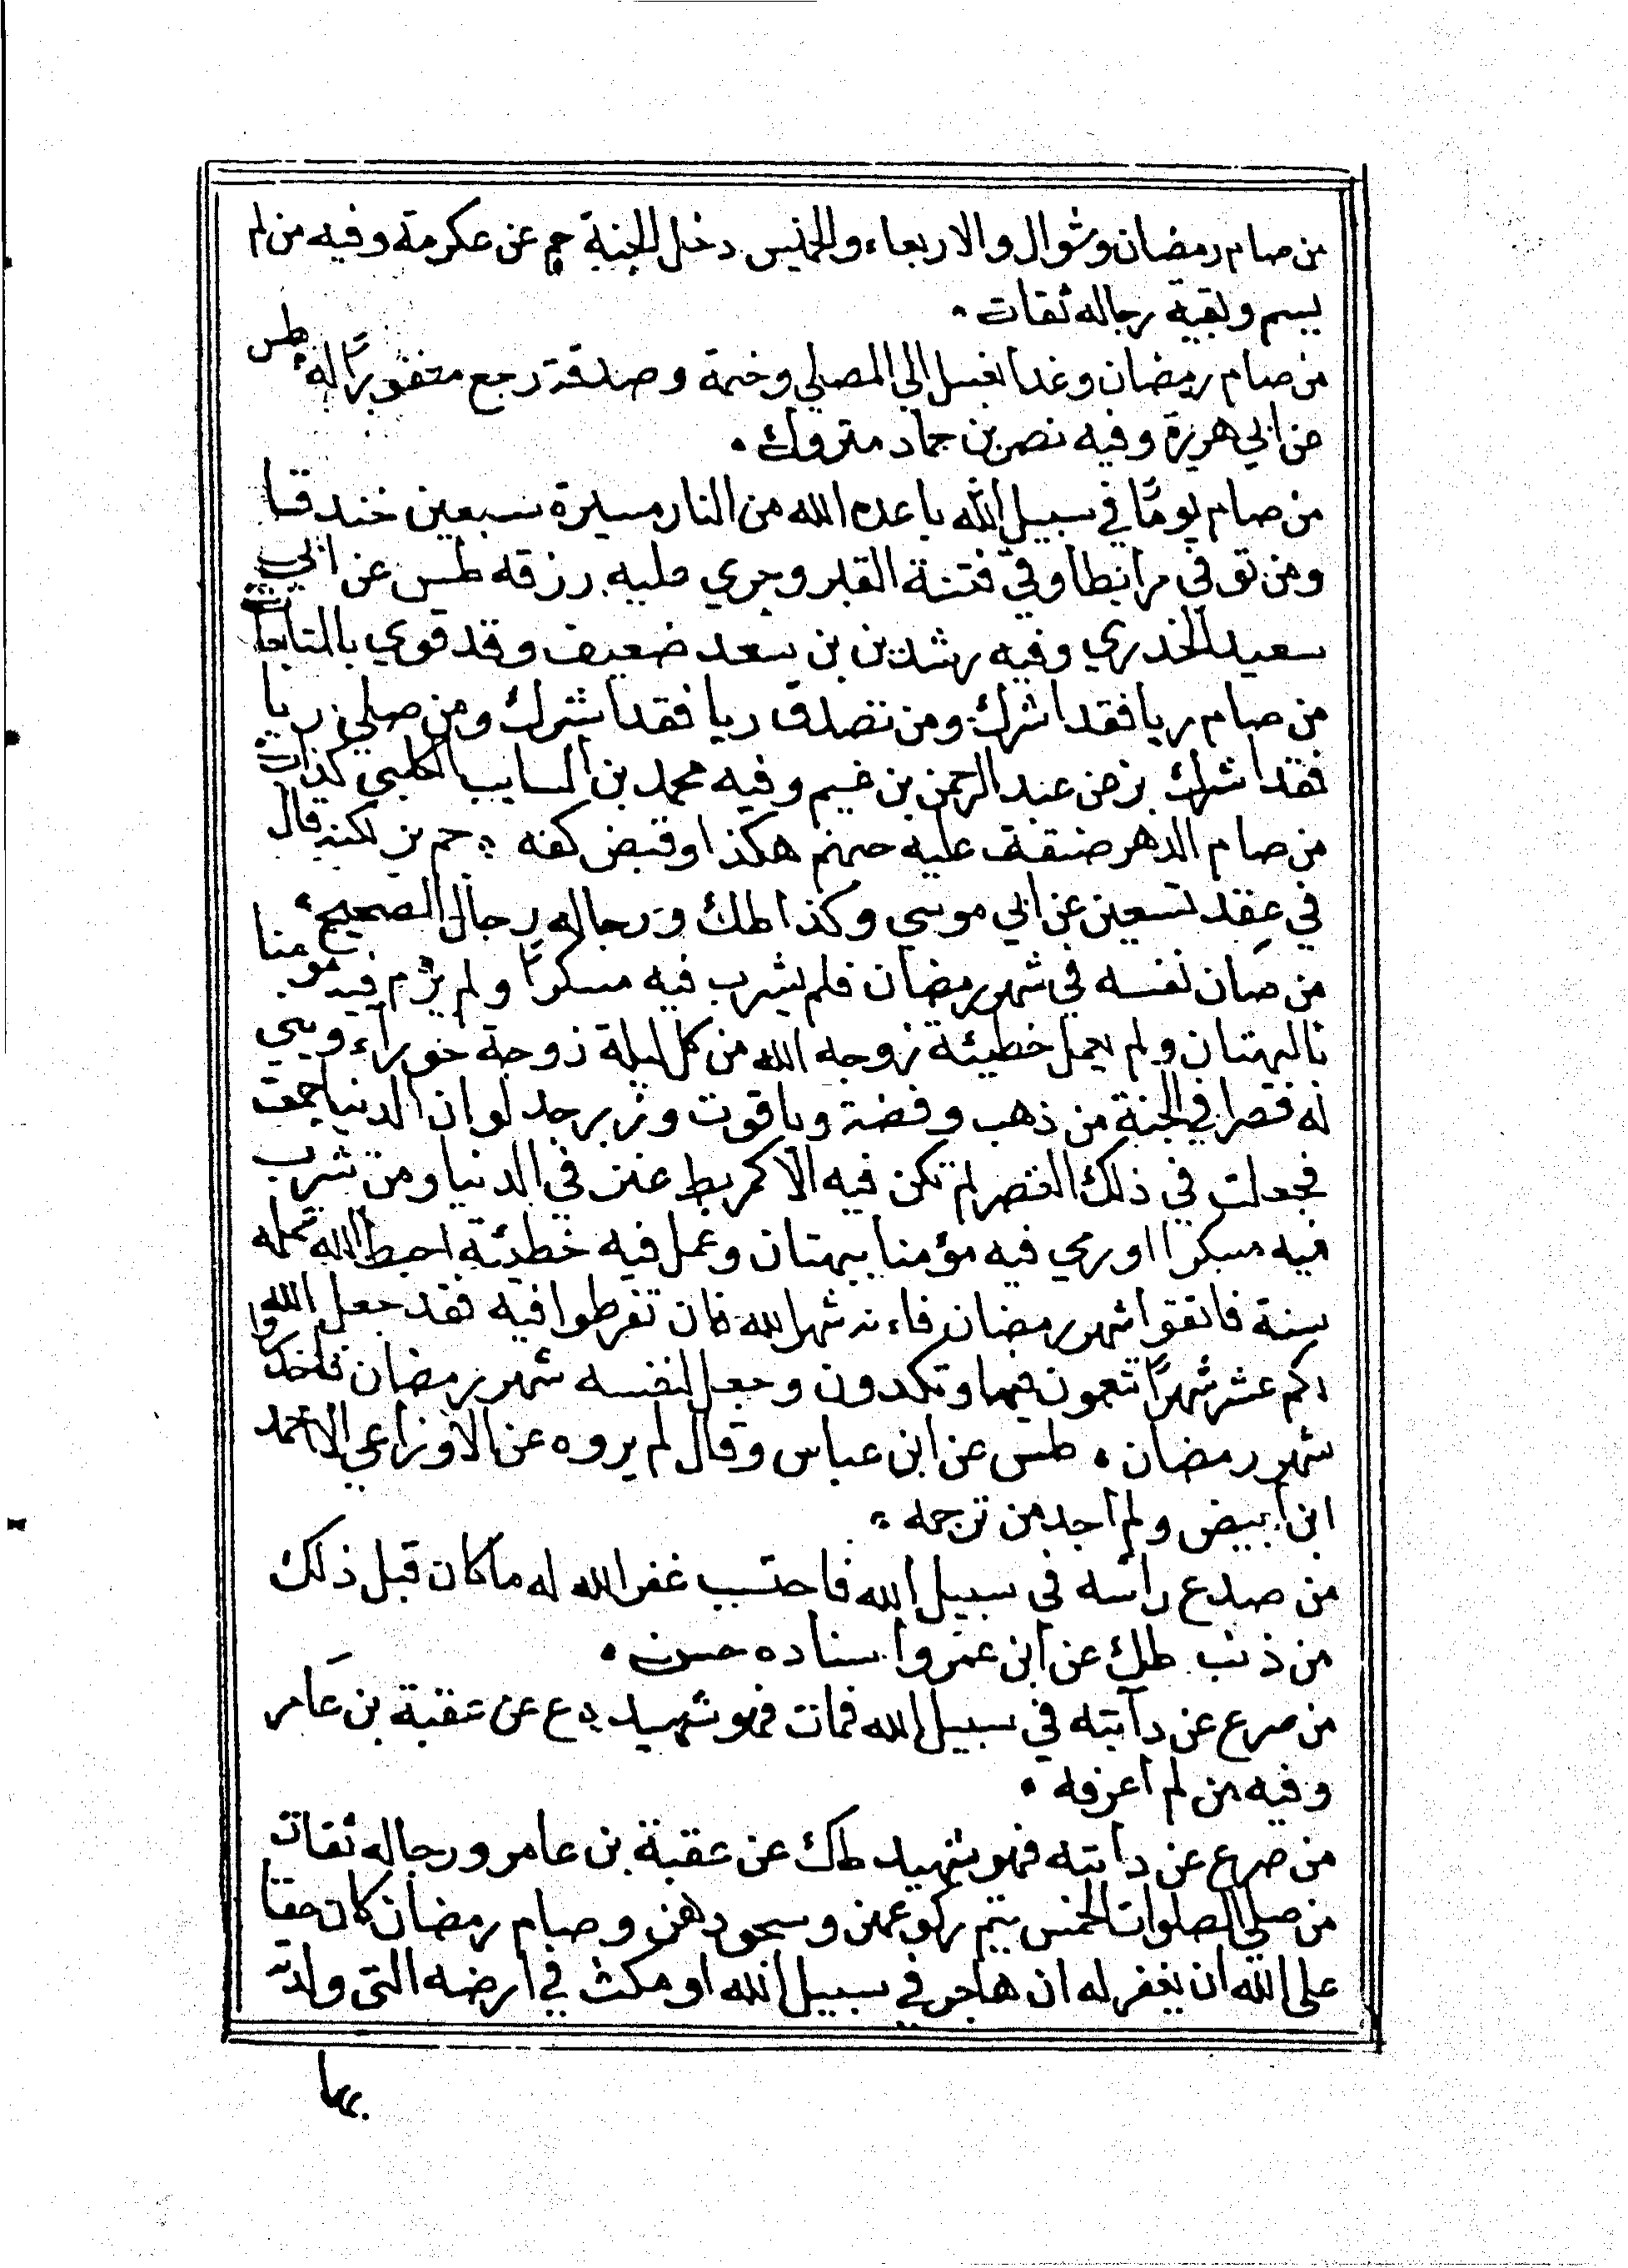 من صام رمضان وشوال والاربعاء والخميس دخل الجنة حم عن عكرمة وفيه من لم
يسم وبقية رجاله ثقات .
من صام رمضان وغدا بغسل الي المصلي وختمه وصدقة رجع مغفورًا له طس
عن ابي هريرة وفيه نصر بن حماد متروك .
من صام يومًا في سبيل الله باعده الله من النار مسيرة سبعين خندقا
ومن توفي مرابطا وقي فتنة القبر وجري عليه رزقه طس عن ابي
سعيد الخدري وفيه رشدين بن سعد ضعيف وقد قوي بالمتابعات
من صام ريا فقد اشرك ومن تصدق ريا فقد اشرك ومن صلي ريا
فقد اشرك بز عن عبد الرحمن بن غنيم وفيه محمد بن السايب الكلبي كذاب
من صام الدهر ضيقت عليه جهنم هكذا وقبض كفه حم بز لكنه قال
في عقد تسعين عن ابي موسي وكذا طك ورجاله رجال الصحيح .
من صان نفسه في شهر رمضان فلم يشرب فيه مسكرًا ولم يرم فيه مومنا
بالبهتان ولم يعمل خطيئة زوجه الله من كل ليلة زوجة حوراء وبني
له قصرا في الجنة من ذهب وفضة وياقوت وزبرجد لو ان الدنيا جمعت
فجعلت في ذلك القصر لم تكن فيه الا كمربط عنز في الدنيا ومن شرب
فيه مسكرا او رمي فيه مؤمنا ببهتان وعمل فيه خطيئة احبط الله عمله
سنة فاتقوا شهر رمضان فاءنه شهر الله فان تفرطوا فيه فقد جعل الله
لكم عشر شهرًا تنعمون فيها وتكدون وجعل لنفسه شهر رمضان فاحذروا
شهر رمضان . طس عن ابن عباس وقال لم يروه عن الاوزاعي الا احمد
ابن ابيض ولم اجد من ترجمه .
من صدع راسه في سبيل الله فاحتسب غفر الله له ما كان قبل ذلك
من ذنب طك عن ابن عمرو اسناده حسن .
من صرع عن دآبته في سبيل الله فمات فهو شهيد ع عن عقبة بن عامر
وفيه من لم اعرفه .
من صرع عن دابته فهو شهيد طك عن عقبة بن عامر ورجاله ثقات
من صلي الصلوات الخمس يتم ركوعهن وسجودهن وصام رمضان كان حقا
على الله ان يغفر له ان هاجر في سبيل الله او مكث في ارضه التي ولد
بها